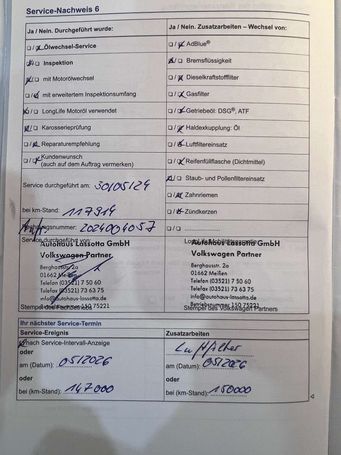 Service-Nachweis 6
Ja / Nein. Durchgeführt wurde:
Ja / Nein. Zusatzarbeiten – Wechsel von:
Ölwechsel-Service
AdBlue®
Inspektion
Bremsflüssigkeit
mit Motorölwechsel
Dieselkraftstofffilter
mit erweitertem Inspektionsumfang
Gasfilter
LongLife Motoröl verwendet
Getriebeöl: DSG®, ATF
Karosserieprüfung
Haldexkupplung: Öl
Reparaturempfehlung
Luftfiltereinsatz
Kundenwunsch
(auch auf dem Auftrag vermerken)
Reifenfüllflasche (Dichtmittel)
Service durchgeführt am: 30/05/24
Staub- und Pollenfiltereinsatz
Zahnriemen
bei km-Stand: 117914
Zündkerzen
nummer: 2024004057
Service durchgeführt von:
Autohaus Lassotta GmbH
Volkswagen Partner
Berghausstr. 2a
01662 Meißen
Telefon (03521) 73 50 60
Telefax (03521) 73 56 63
info@autohaus-lassotta.de
150 75221
Autohaus Lassotta GmbH
Volkswagen Partner
Berghausstr. 2a
01662 Meißen
Telefon (03521) 73 50 60
Telefax (03521) 73 56 63
info@autohaus-lassotta.de
Betriebsnummer 150 75221
Stempel des Volkswagen Partners
Ihr nächster Service-Termin
Service-Ereignis
Zusatzarbeiten
nach Service-Intervall-Anzeige
Luftfilter
oder
am (Datum): 05/2026
am (Datum): 05/2026
oder
oder
bei (km-Stand): 147000
bei (km-Stand): 150000